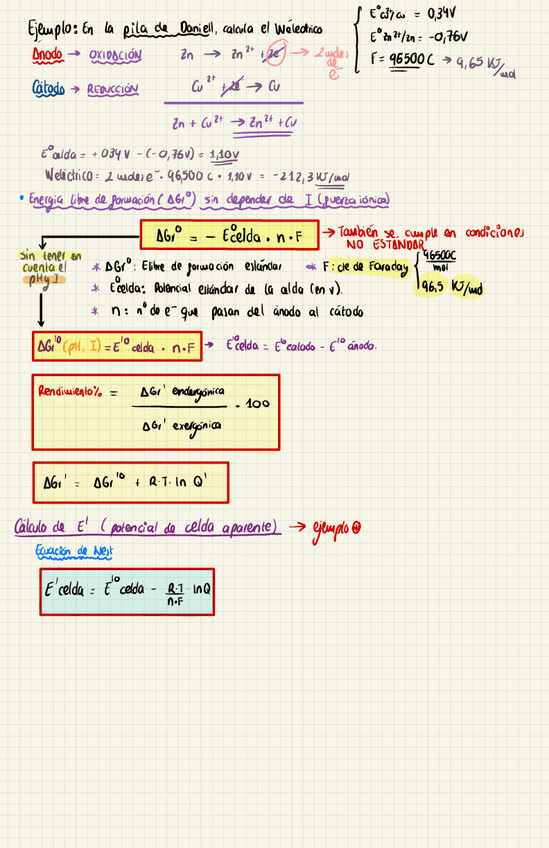 Ejemplo: En la pila de Daniell, calcula el Weléctrico
E° Cu2+/Cu = 0,34V
E° Zn2+/Zn = -0,76V
F = 96500 C → 9,65 KJ/mol
Ánodo → OXIDACIÓN Zn → Zn2+ + 2e- → 2 moles de e-
Cátodo → REDUCCIÓN Cu2+ + 2e- → Cu
Zn + Cu2+ → Zn2+ + Cu
E°celda = +034V - (-0,76V) = 1,10V
Weléctrico = 2 moles e- · 96,500 C · 1,10V = -212,3 KJ/mol
• Energía libre de formación (ΔGr°) sin depender de I (fuerza iónica)
ΔGr° = - E°celda · n · F → También se cumple en condiciones NO ESTÁNDAR
Sin tener en cuenta el pH y I
* ΔGr°: E libre de formación estándar
* E°celda: Potencial estándar de la celda (en V).
* n: n° de e- que pasan del ánodo al cátodo
* F: cte de Faraday
96500C/mol
96,5 KJ/mol
ΔGr'° (pH, I) = E'°celda · n · F → E'celda = E'°catodo - E'°ánodo.
Rendimiento% = ΔGr' endergónica / ΔGr' exergónica · 100
ΔGr' = ΔGr'° + R·T·ln Q'
Cálculo de E' (potencial de celda aparente) → ejemplo
Ecuación de Nest
E'celda = E'°celda - R·T/n·F · lnQ